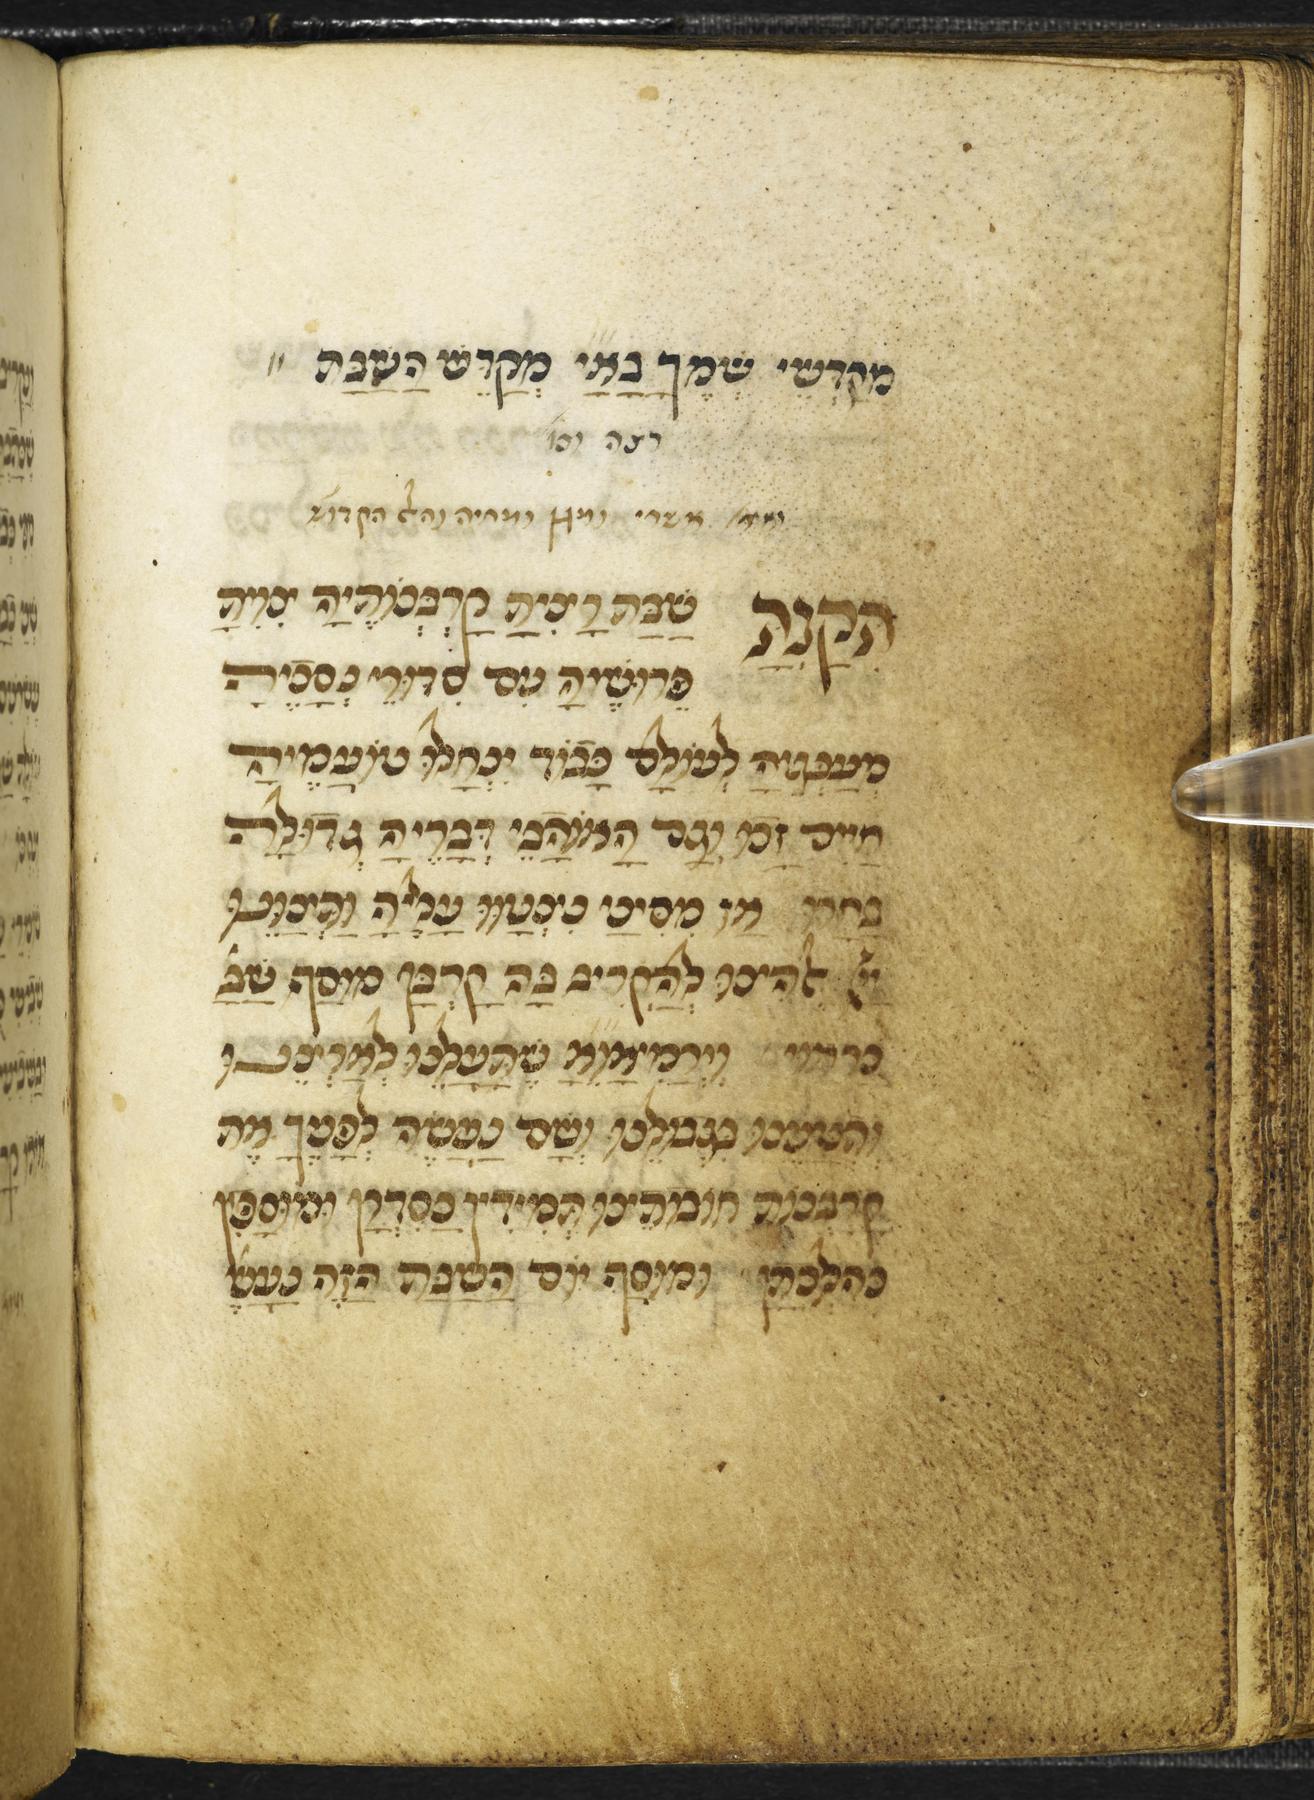 מְקַדְּשֵׁי שְׁמֶךָ בָּאַ״יָ מְקַדֵּשׁ הַשַּׁבָּת ״
רצה וכו׳
אשרי ומחזירין
תִּקַּנְתָּ שַׁבָּת רָצִיתָ קָרְבְּנוֹתֶיהָ צִוִּיתָ
פֵּרוּשֶׁיהָ עִם סִדּוּרֵי נְסָכֶיהָ
מְעַנְּגֶיהָ לְעוֹלָם כָּבוֹד יִנְחָלוּ טוֹעֲמֶיהָ
חַיִּים זָכוּ וְגַם הָאוֹהֲבֵי דְּבָרֶיהָ גְּדוּלָּה
בָּחֲרוּ אָז מִסִּינַי נִצְטַוּוּ עָלֶיהָ וַתְּצַוֵּנוּ
יְיָ אלהינו לְהַקְרִיב בָּהּ קָרְבַּן מוּסַף שַׁבָּ׳
כראוי שֶׁתַּעֲלֵנוּ לְאַרְצֵנוּ
וְתִטָּעֵנוּ בִּגְבוּלֵנוּ וְשָׁם נַעֲשֶׂה לְפָנֶיךָ אֶת
קָרְבְּנוֹת חוֹבוֹתֵינוּ תְּמִידִין כְּסִדְרָן וּמוּסָפִין
כְּהִלְכָתָן וּמוּסַף יוֹם הַשַּׁבָּת הַזֶּה נַעֲשֶׂ׳